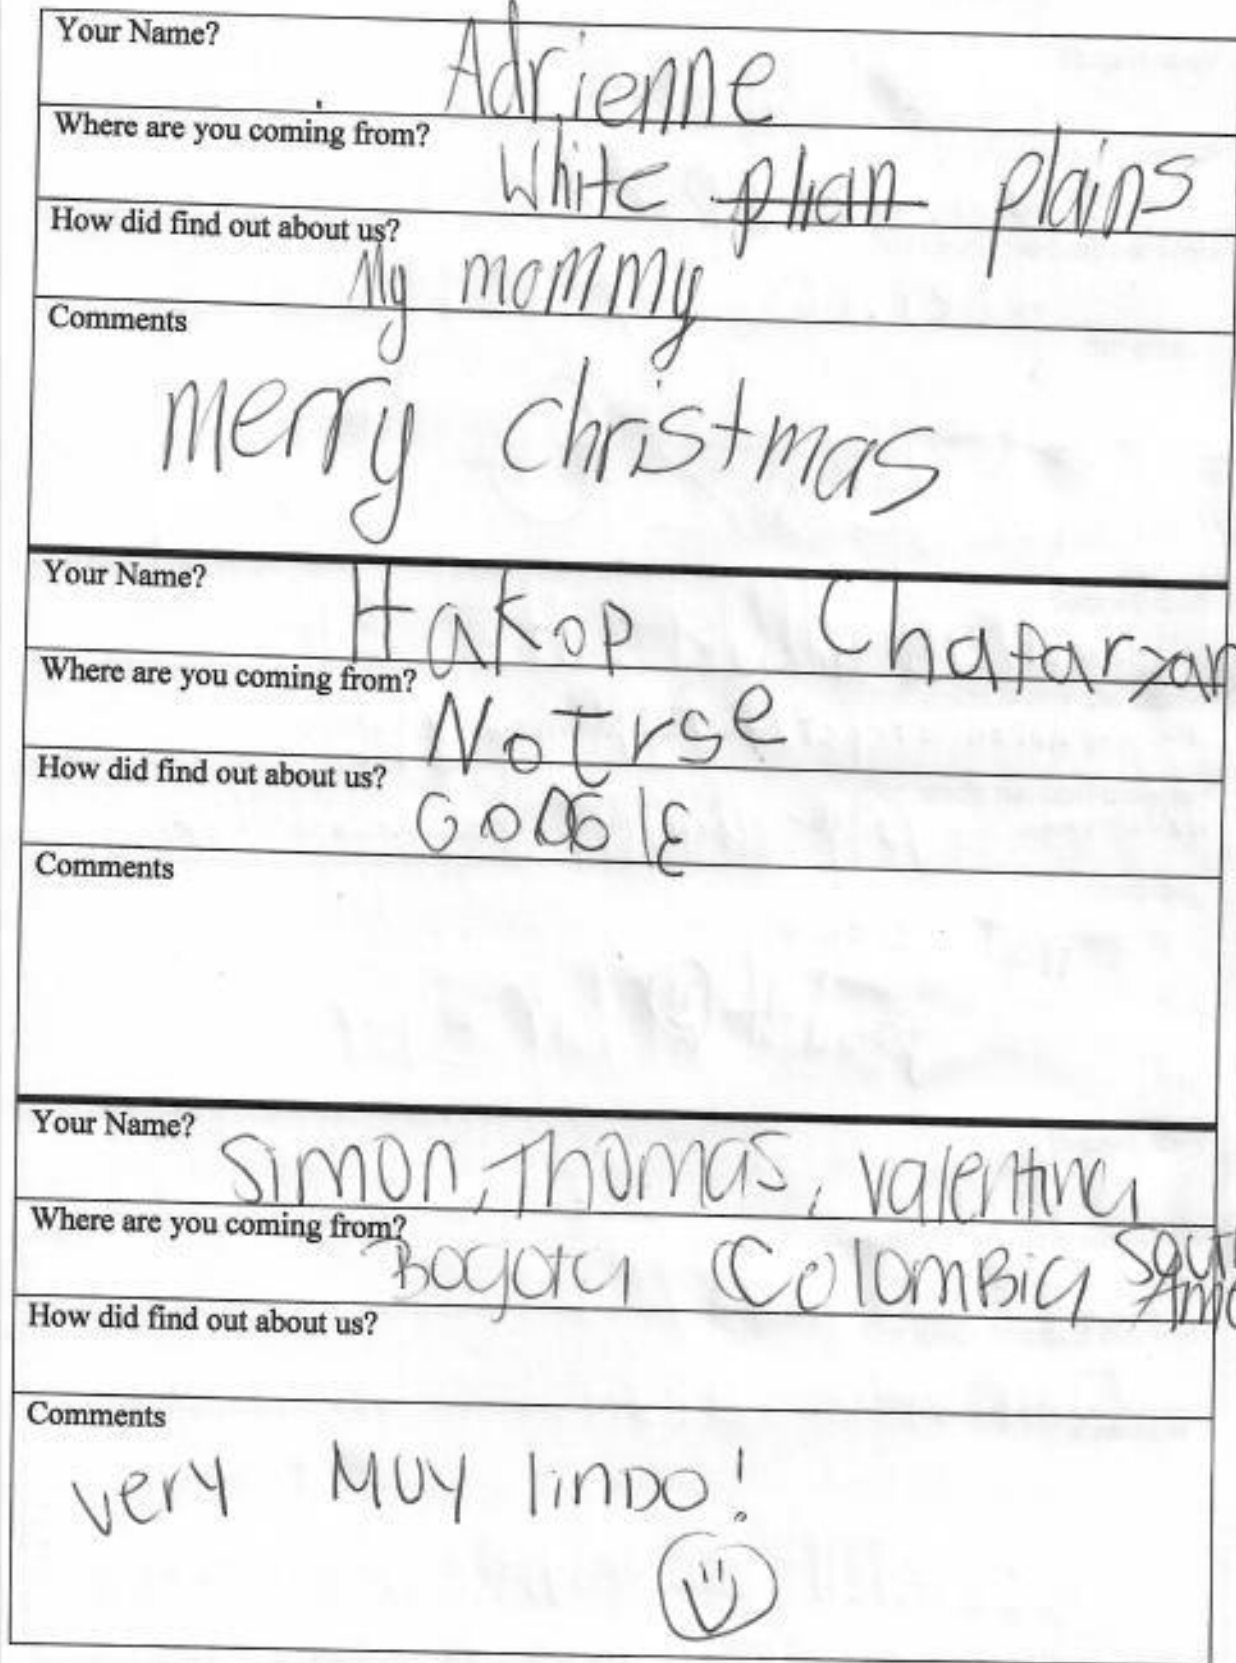 Your Name? Adrienne
Where are you coming from? White plian plains
How did find out about us? My mommy
Comments
merry christmas
Your Name? Hakop
Where are you coming from? Notrse
How did find out about us? GOOGlE
Comments
Your Name? Simon, Thomas, valentina
Where are you coming from? Bogota ColomBia
How did find out about us?
Comments
very MUY linDo!